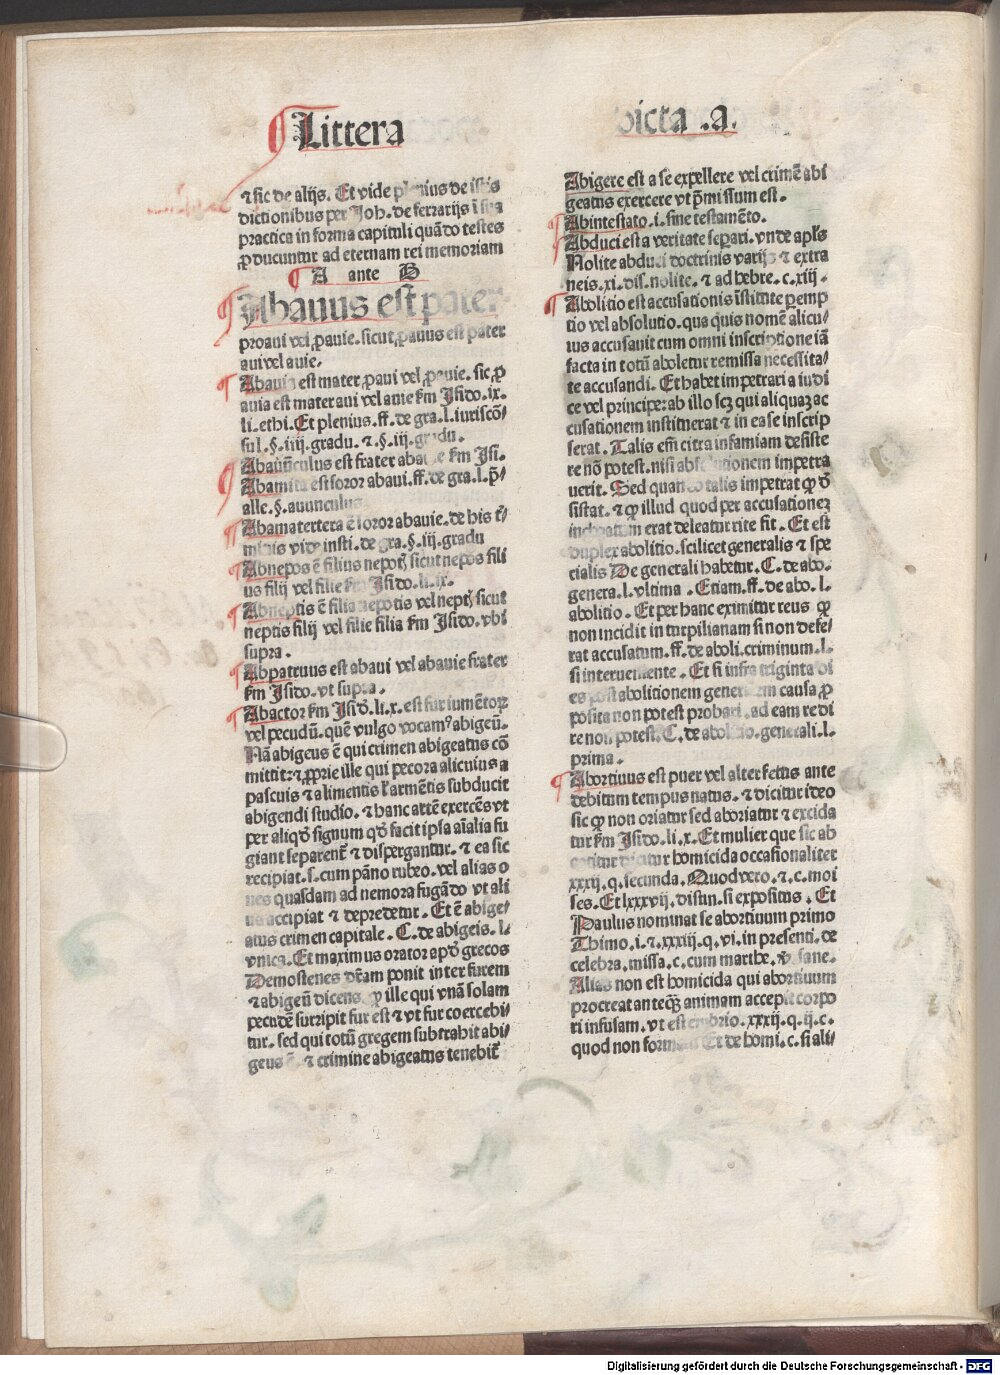 Littera
dicta .a.
⁊ sic de alijs. Et vide plenius de istis
dictionibus per Joh. de ferrarijs ī sua
practica in forma capituli quādo testes
ꝓducuntur ad eternam rei memoriam
A ante B
Abauus est pater
proaui vel ꝓauie. sicut ꝓauus est pater
aui vel auie.
Abauia est mater ꝓaui vel ꝓauie. sic ꝓ
auia est mater aui vel auie s̄m Jsido. ix.
li. ethi. Et plenius. ff. de gra. l. iuriscō/
sul. §. iiij. gradu. ⁊. §. iij. gradu.
Abauūculus est frater abauie s̄m Jsi.
Abamita est soror abaui. ff. de gra. l. p̄/
alle. §. auunculus
Abamatertera ē soror abauie. de his t̄/
minis vide insti. de gra. §. iij. gradu
Abnepos ē filius nepotꝭ sicut nepos fili
us filij vel filie s̄m Jsido. li. ix.
Abneptis ē filia nepotis vel neptꝭ sicut
neptis filij vel filie filia s̄m Jsido. vbi
supra.
Abpatruus est abaui vel abauie frater
s̄m Jsido. vt supra.
Abactor s̄m Jsid̄o. li. x. est fur iumētoꝝ
vel pecudū. quē vulgo vocamꝰ abigeū.
Nā abigeus ē qui crimen abigeatus cō
mittit: ⁊ ꝓprie ille qui pecora alicuius a
pascuis ⁊ alimentis ł armētis subducit
abigendi studio. ⁊ hanc artē exercēs vt
per aliqd̄ signum qd̄ facit ipsa aīalia fu
giant separent̄ ⁊ dispergantur. ⁊ ea sic
recipiat. s. cum pāno rubeo. vel alias o
ues quasdam ad nemora fugādo vt ali
us accipiat ⁊ depredetur. Et ē abige/
atus crimen capitale. C. de abigeis. l.
vnica. Et maximus orator apd̄ grecos
Demostenes dr̄am ponit inter furem
⁊ abigeū dicens ꝙ ille qui vnā solam
pecudē surripit fur est ⁊ vt fur coercebi
tur. sed qui totū gregem subtrahit abi/
geus ē. ⁊ crimine abigeatus tenebit̄
Abigere est a se expellere vel crimē abi
geatus exercere vt p̄missum est.
Abintestato. i. sine testamēto.
Abduci est a veritate separi. vnde apl's
Nolite abduci doctrinis varijs ⁊ extra
neis. xi. dis. nolite. ⁊ ad hebre. c. xiij.
Abolitio est accusationis īstitute peremp
tio vel absolutio. qua quis nomē alicu/
ius accusauit cum omni inscriptione iā
facta in totū aboletur remissa necessita/
te accusandi. Et habet impetrari a iudi
ce vel principe: ab illo scꝫ qui aliquaꝫ ac
cusationem instituerat ⁊ in ea se inscrip
serat. Talis em̄ citra infamiam desiste
re nō potest. nisi absolutionem impetra
uerit. Sed quando talis impetrat ꝙ d̄
sistat. ⁊ ꝙ illud quod per accusationeꝫ
inchoatum erat deleatur rite fit. Et est
duplex abolitio. scilicet generalis ⁊ spe
cialis De generali habetur. C. de abo.
genera. l. vltima. Etiam. ff. de abo. l.
abolitio. Et per hanc eximitur reus ꝙ
non incidit in turpilianam si non defe/
rat accusatum. ff. de aboli. criminum. l.
si interueniente. Et si infra triginta di
es post abolitionem generalem causa ꝓ
posita non potest probari. ad eam redi
re non potest. C. de abolitio. generali. l.
prima.
Abortiuus est puer vel alter fetus ante
debitum tempus natus. ⁊ dicitur ideo
sic ꝙ non oriatur sed aboriatur ⁊ excida
tur s̄m Jsido. li. x. Et mulier que sic ab
dicitur homicida occasionaliter
xxxij. q. secunda. Quod vero. ⁊. c. moi
ses. Et lxxxvij. distin. si expositus. Et
Paulus nominat se abortiuum primo
Thimo. i. ⁊. xxxiij. q. vi. in presenti. de
celebra. missa. c. cum marthe. v̄. sane.
Alias non est homicida qui abortiuum
procreat anteqꝫ animam accepit corpo
ri infusam. vt est embrio. xxxij. q. ij. c.
quod non formatus Et de homi. c. si ali/
Digitalisierung gefördert durch die Deutsche Forschungsgemeinschaft - DFG